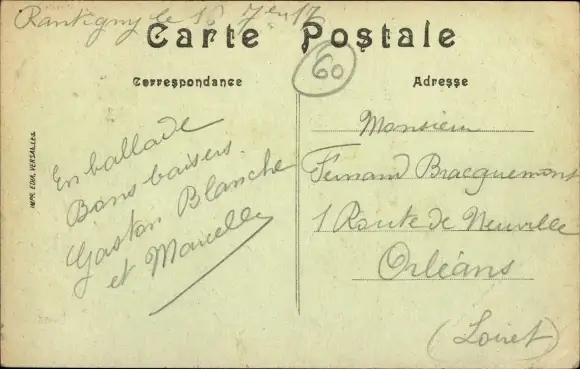 Rantigny le 16 7en 17
Carte Postale
60
Correspondance
Adresse
En ballade
Bons baisers.
Gaston Blanche
et Marcelle
Monsieur
Fernand Bracquemont
1 Route de Neuville
Orléans
(Loiret)
IMP. EDIA. VERSAILLES